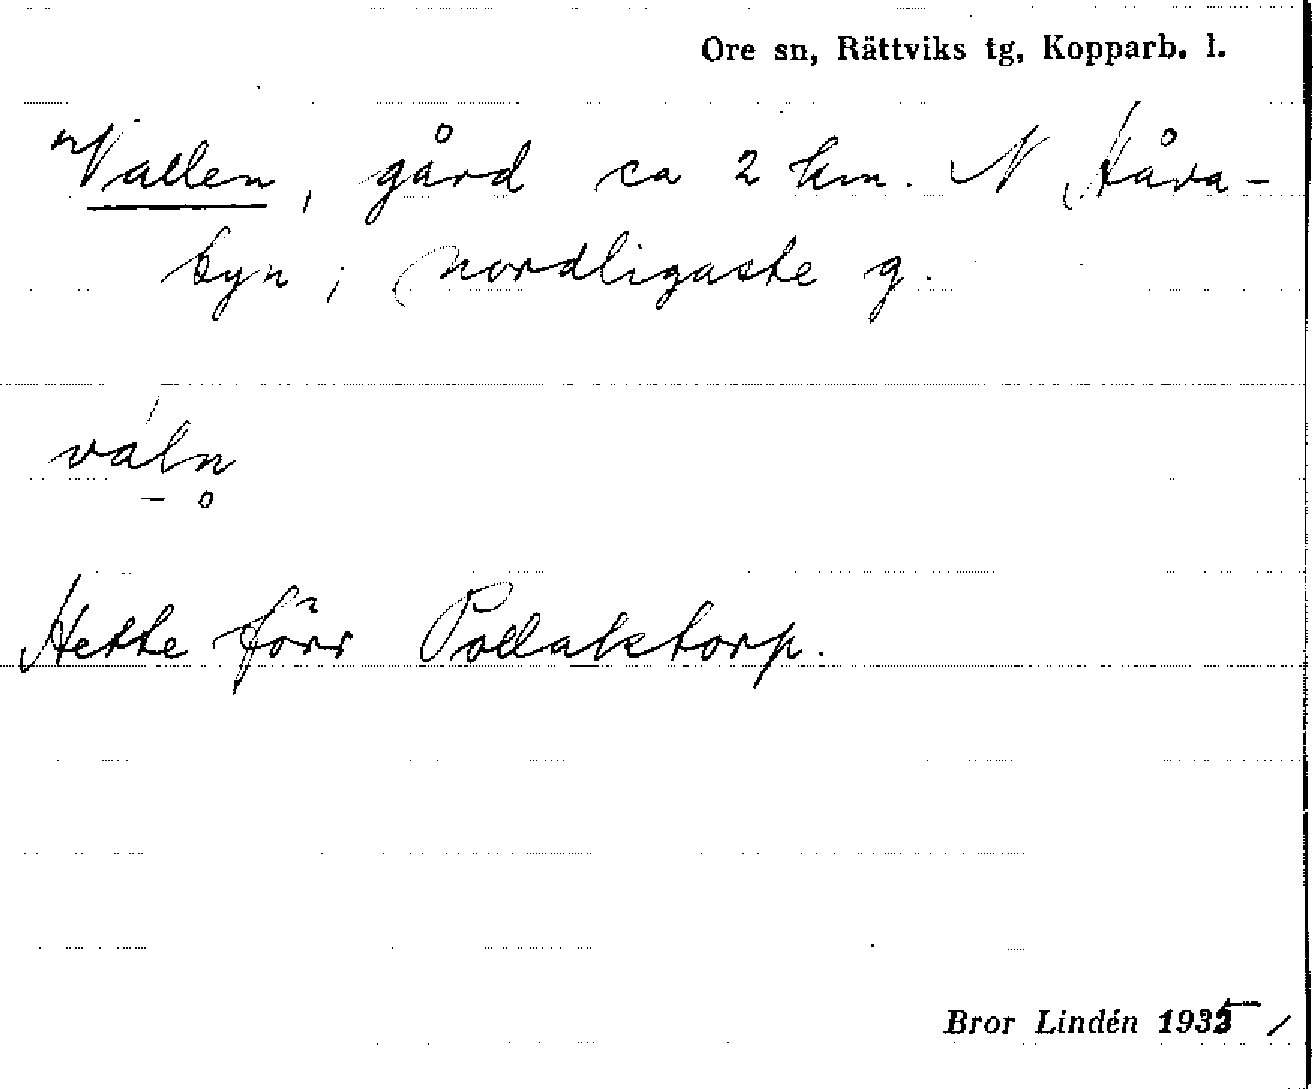 Ore sn, Rättviks tg, Kopparb. l.
Vallen, gård ca 2 km. N Håva-
byn; nordligaste g.
váln
Hette förr Pollakstorp.
Bror Lindén 1935